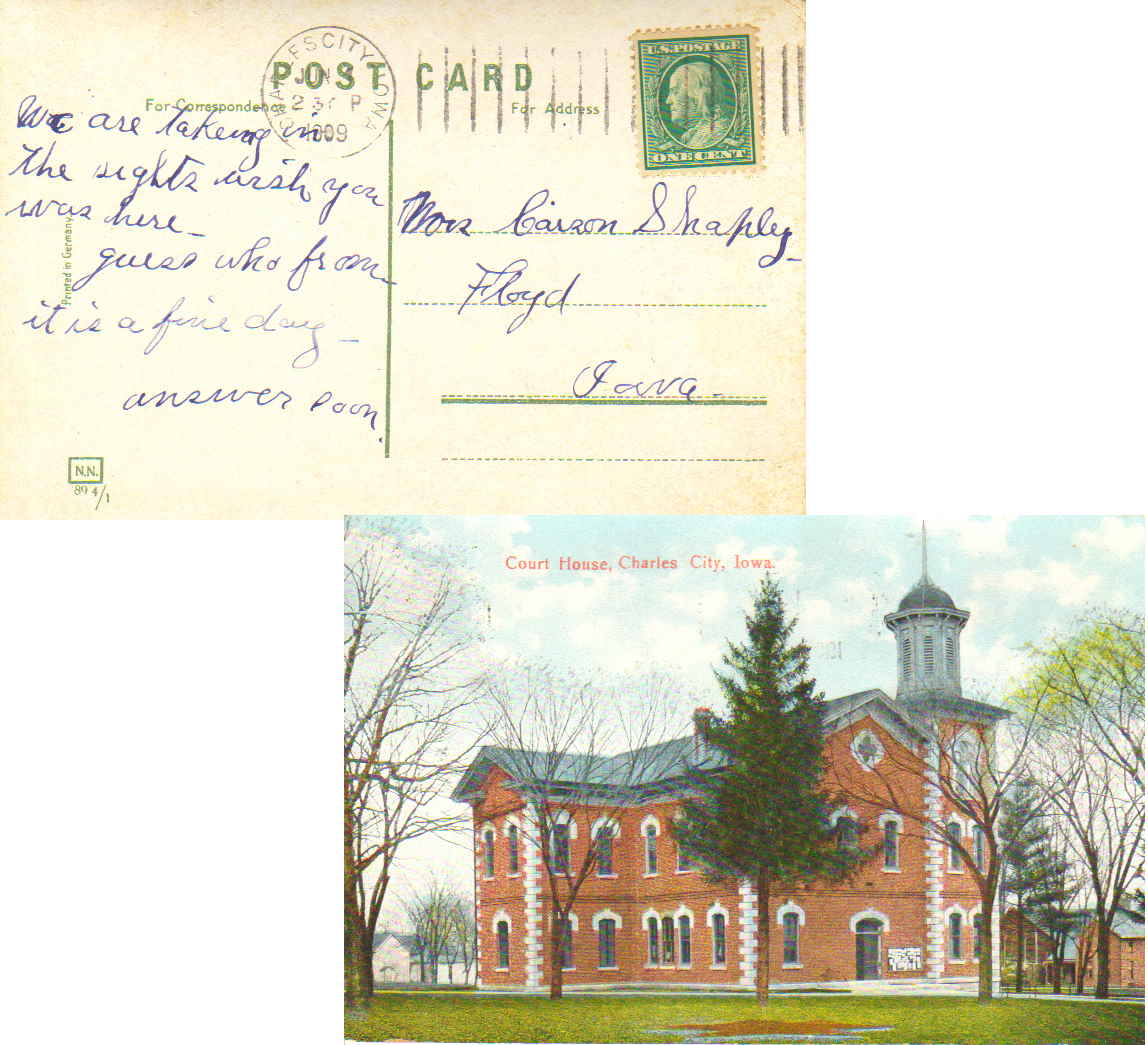 CHARLES CITY, IOWA
JUN
2 30 P
1909
POST CARD
For Correspondence
For Address
U.S. POSTAGE
ONE CENT
We are takeing in
the sights wish you
was here -
guess who from -
it is a fine day -
answer soon.
Printed in Germany
Mrs Carson Shapley -
Floyd
Iowa -
N.N.
89 4/1
Court House, Charles City, Iowa.